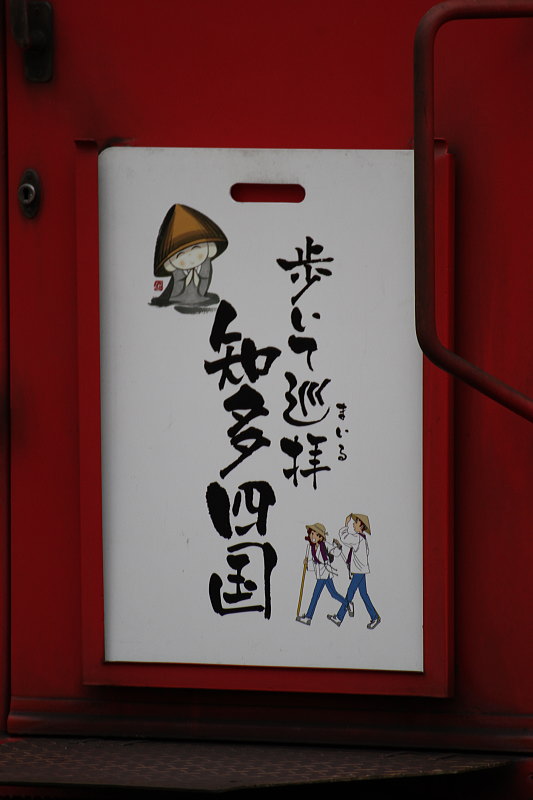 歩いて巡拝
まいる
知多四国